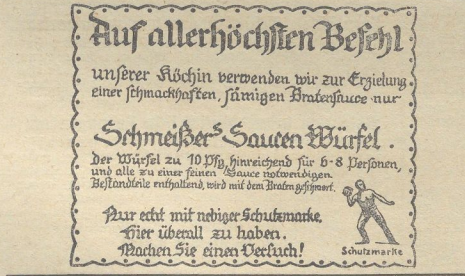 Auf allerhöchsten Befehl
unserer Köchin verwenden wir zur Erzielung
einer schmackhaften, sämigen Bratensauce nur
Schmeißer's Saucen Würfel.
der Würfel zu 10 Pfg. hinreichend für 6-8 Personen,
und alle zu einer feinen Sauce notwendigen
Bestandteile enthaltend, wird mit dem Braten geschmort.
Nur echt mit nebiger Schutzmarke.
Hier überall zu haben.
Machen Sie einen Versuch!
Schutzmarke